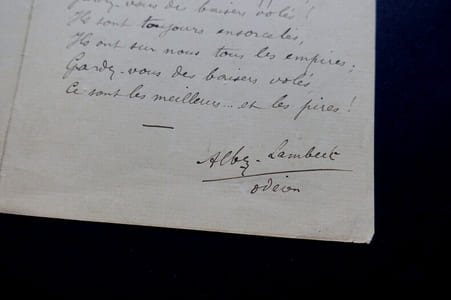 Gardez-vous des baisers volés !
Ils sont toujours ensorcelés,
Ils ont sur nous tous les empires ;
Gardez-vous des baisers volés,
Ce sont les meilleurs... et les pires !
Lambert
odéon